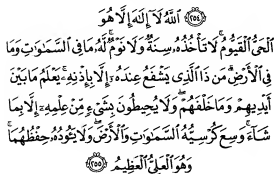 ﴿٢٥٤﴾ اللَّهُ لَا إِلَٰهَ إِلَّا هُوَ
الْحَيُّ الْقَيُّومُ ۚ لَا تَأْخُذُهُ سِنَةٌ وَلَا نَوْمٌ ۚ لَهُ مَا فِي السَّمَاوَاتِ وَمَا
فِي الْأَرْضِ ۗ مَن ذَا الَّذِي يَشْفَعُ عِندَهُ إِلَّا بِإِذْنِهِ ۚ يَعْلَمُ مَا بَيْنَ
أَيْدِيهِمْ وَمَا خَلْفَهُمْ ۖ وَلَا يُحِيطُونَ بِشَيْءٍ مِّنْ عِلْمِهِ إِلَّا بِمَا
شَاءَ ۚ وَسِعَ كُرْسِيُّهُ السَّمَاوَاتِ وَالْأَرْضَ ۖ وَلَا يَئُودُهُ حِفْظُهُمَا ۚ
وَهُوَ الْعَلِيُّ الْعَظِيمُ ﴿٢٥٥﴾